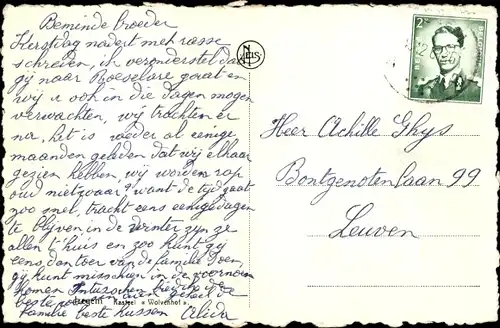 Beminde broeder
Kerstdag nadert met rasse
schreden, ik veronderstel dat
gij naar Roeselare gaat en
wij u ook in die dagen mogen
verwachten, wij trachten er
na, het is reeder al eenige
maanden geleden dat wij elkaar
gezien hebben, wij worden rap
oud nietwaar? want de tijd gaat
zoo snel, tracht eens eenige dagen
te blijven in de winter zijn ze
allen t'huis en zoo kunt gij
eens dan toer van de familie doen,
gij kunt misschien in de voornoen
komen Intusschen
beste
familie beste kussen Alida
Izegem Kasteel « Wolvenhof ».
NELS
2F
BELGIQUE
BELGIE
Heer Achille Ghys
Bontgenotenlaan 99
Leuven